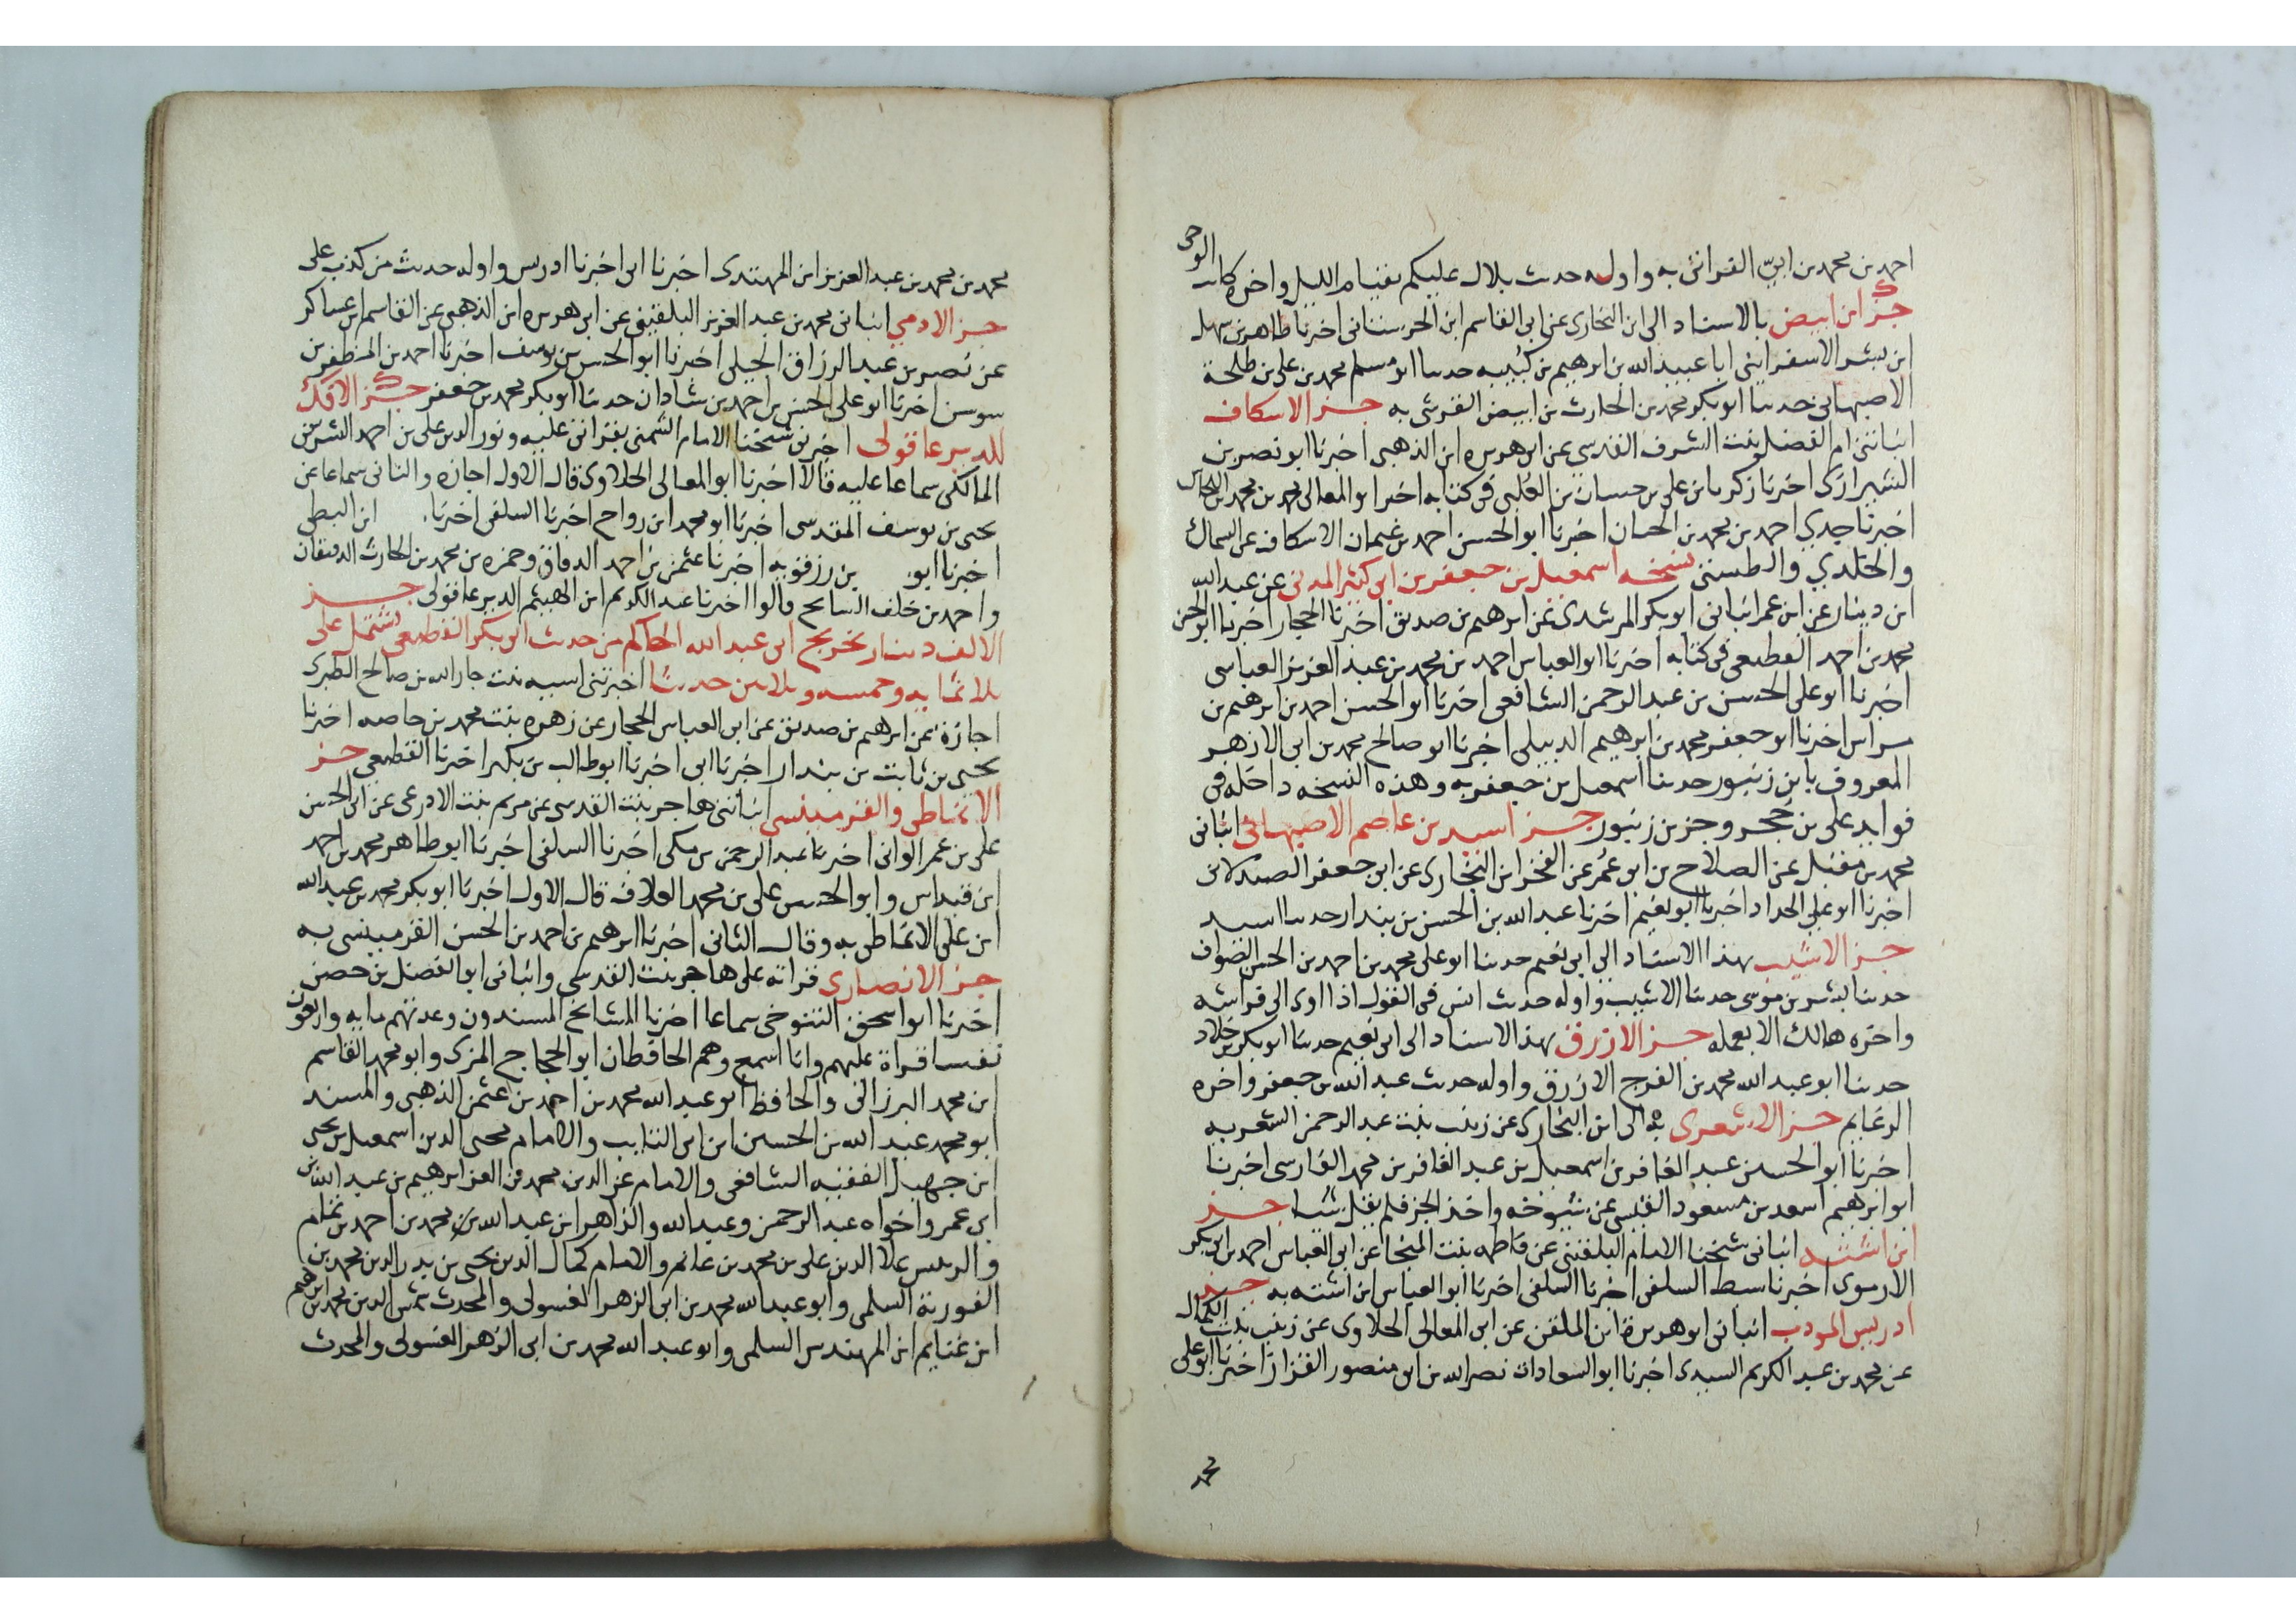 احمد بن محمد بن ابيّ القراني به واوله حديث بلال عليكم بقيام الليل واخره كاتب الوحى
جزء ابن ابيض بالاسناد الى ابن البخارى عن ابى القاسم ابن الحرستانى اخبرنا طاهر بن سهل
ابن بشر الاسفراينى ابا عبيد الله بن ابرهيم بن كبيبه حدثنا ابو مسلم محمد بن على بن طلحة
الاصبهانى حدثنا ابو بكر محمد بن الحارث بن ابيض القرشى به جزء الاسكاف
انباتنى ام الفضل بنت الشرف القدسى عن ابى هريره ابن الذهبى اخبرنا ابو نصر بن
الشيرازى اخبرنا زكريا بن على بن حسان بن العلبى فى كتابه اخبرنا ابو المعالى محمد بن محمد بن النحاس
اخبرنا جدي احمد بن محمد بن الحسان اخبرنا ابو الحسن احمد بن عثمان الاسكاف عن السماك
والخلدي والطستى نسخه اسمعيل بن جعفر بن ابى كثير المدنى عن عبد الله
ابن دينار عن ابن عمر انبانى ابو بكر المرشدى عن ابرهيم بن صديق اخبرنا الحجار اخبرنا ابو الحسن
محمد بن احمد القطيعى فى كتابه اخبرنا ابو العباس احمد بن محمد بن عبد العزيز العباسى
اخبرنا ابو على الحسن بن عبد الرحمن الشافعى اخبرنا ابو الحسن احمد بن ابرهيم بن
فراس اخبرنا ابو جعفر محمد بن ابرهيم الديبلى اخبرنا ابو صالح محمد بن ابى الازهر
المعروف بابن زنبور حدثنا اسمعيل بن جعفر به وهذه النسخه داخله فى
فوايد على بن حجر وجز بن زنبور جزء اسيد بن عاصم الاصبهانى انبانى
محمد بن مقبل عن الصلاح بن ابو عمر عن الفخر ابن البخارى عن ابن جعفر الصيدلانى
اخبرنا ابو على الحداد اخبرنا ابو نعيم اخبرنا عبد الله بن الحسن بن بندار حدثنا اسيد
جزء الاشيب بهذا الاسناد الى ابى نعيم حدثنا ابو على محمد بن احمد بن الحسن الصواف
حدثنا بشر بن موسى حدثنا الاشيب واوله حديث انس فى القول اذا اوى الى فراشه
واخره هالك الا بعمله جزء الازرق بهذا الاسناد الى ابى نعيم حدثنا ابو بكر بن خلاد
حدثنا ابو عبد الله محمد بن الفرج الازرق واوله حديث عبد الله بن جعفر واخره
الرغايم جزء الاشعرى به الى ابن البخارى عن زينب بنت عبد الرحمن الشعريه
اخبرنا ابو الحسين عبد الغافر بن اسمعيل بن عبد الغافر بن محمد الفارسى اخبرنا
ابو ابرهيم اسعد بن مسعود القتبى عن شيوخه واخذ الجز فلم يقل شيا جزء
ابن اشته انبانى شيخنا الامام البلقينى عن فاطمه بنت المنجا عن ابى العباس احمد بن ابى بكر
الارموى اخبرنا سبط السلفى اخبرنا السلفى اخبرنا ابو العباس ابن اشته به جزء
ادريس المودب انبانى ابو هريرة ابن الملقن عن ابى المعالى الحلاوى عن زينب بنت الكمال
عن محمد بن عبد الكريم السيدى اخبرنا ابو السعادات نصر الله بن ابى منصور القزاز اخبرنا ابو على
محمد
محمد بن محمد بن عبد العزيز ابن المهتدى اخبرنا ابى اخبرنا ادريس واوله حديث من كذب على
جزء الادمي انبانى محمد بن عبد العزيز البلقينى عن ابى هريره ابن الذهبى عن القاسم ابن عساكر
عن نصر بن عبد الرزاق الجيلى اخبرنا ابو الحسن بن يوسف اخبرنا احمد بن المظفر بن
سوسن اخبرنا ابو على الحسن بن احمد بن شاذان حدثنا ابو بكر محمد بن جعفر جزء الافك
للديرعاقولى اخبرنى شيخنا الامام الشمنى بقراتى عليه ونور الدين على بن احمد
المالكى سماعا عليه قالا اخبرنا ابو المعالى الحلاوى قال الاول اجازه والثانى سماعا عن
يحيى بن يوسف المقدسى اخبرنا ابو محمد ابن رواح اخبرنا السلفى اخبرنا ابن البطى
اخبرنا ابو بن رزقويه اخبرنا عثمن بن احمد الدقاق وحمزه بن محمد بن الحارث الدهقان
واحمد بن خلف السايح قالوا اخبرنا عبد الكريم ابن الهيثم الديرعاقولى جزء
الالف دينار تخريج ابى عبد الله الحاكم من حديث ابو بكر القطيعى تشتمل على
ثلاثمايه وخمسه وثلاثين حديثا اخبرتنى اسيه بنت جار الله بن صالح الطبرى
اجازة عن ابرهيم بن صديق عن ابى العباس الحجار عن زهره بنت محمد بن حاضر اخبرنا
يحيى بن ثابت بن بندار اخبرنا ابى اخبرنا ابو طالب بن بكير اخبرنا القطيعى جزء
الانماطى والقرميسينى انباتنى هاجر بنت القدسى عن مريم بنت الاذرعى عن ابى الحسن
على بن عمر الوانى اخبرنا عبد الرحمن بن مكى اخبرنا السلفى اخبرنا ابو طاهر محمد بن احمد
ابن قيداس وابو الحسن على بن محمد العلاف قال الاول اخبرنا ابو بكر محمد بن عبد الله
ابن على الانماطى به وقال الثانى اخبرنا ابرهيم بن احمد بن الحسن القرميسينى به
جزء الانصارى قراته على هاجر بنت القدسى وانبانى ابو الفضل بن حصن
اخبرنا ابو اسحق التنوخى سماعا اخبرنا المشايخ المسندون وعدتهم مايه واربعون
نفسا قراة عليهم وانا اسمع وهم الحافظان ابو الحجاج المزى وابو محمد القاسم
ابن محمد البرزالى والحافظ ابو عبد الله محمد بن احمد بن عثمن الذهبى والمسند
ابو محمد عبد الله بن الحسين ابن ابى التايب والامام محيى الدين اسمعيل بن يحيى
ابن جهبل الفقيه الشافعى والامام عز الدين محمد بن العز ابرهيم بن عبد الله بن
ابى عمر واخواه عبد الرحمن وعبد الله والزاهر ابن عبد الله بن محمد بن احمد بن تمام
والرييس علا الدين على بن محمد بن غانم والامام كمال الدين يحيى بن بدر الدين محمد بن
الفويرة السلمى وابو عبد الله محمد بن ابى الزهر الغسولى والمحدث شمس الدين محمد بن ابرهيم
ابن غنايم ابن المهندس السلمى وابو عبد الله محمد بن ابى الزهر الغسولى والمحدث